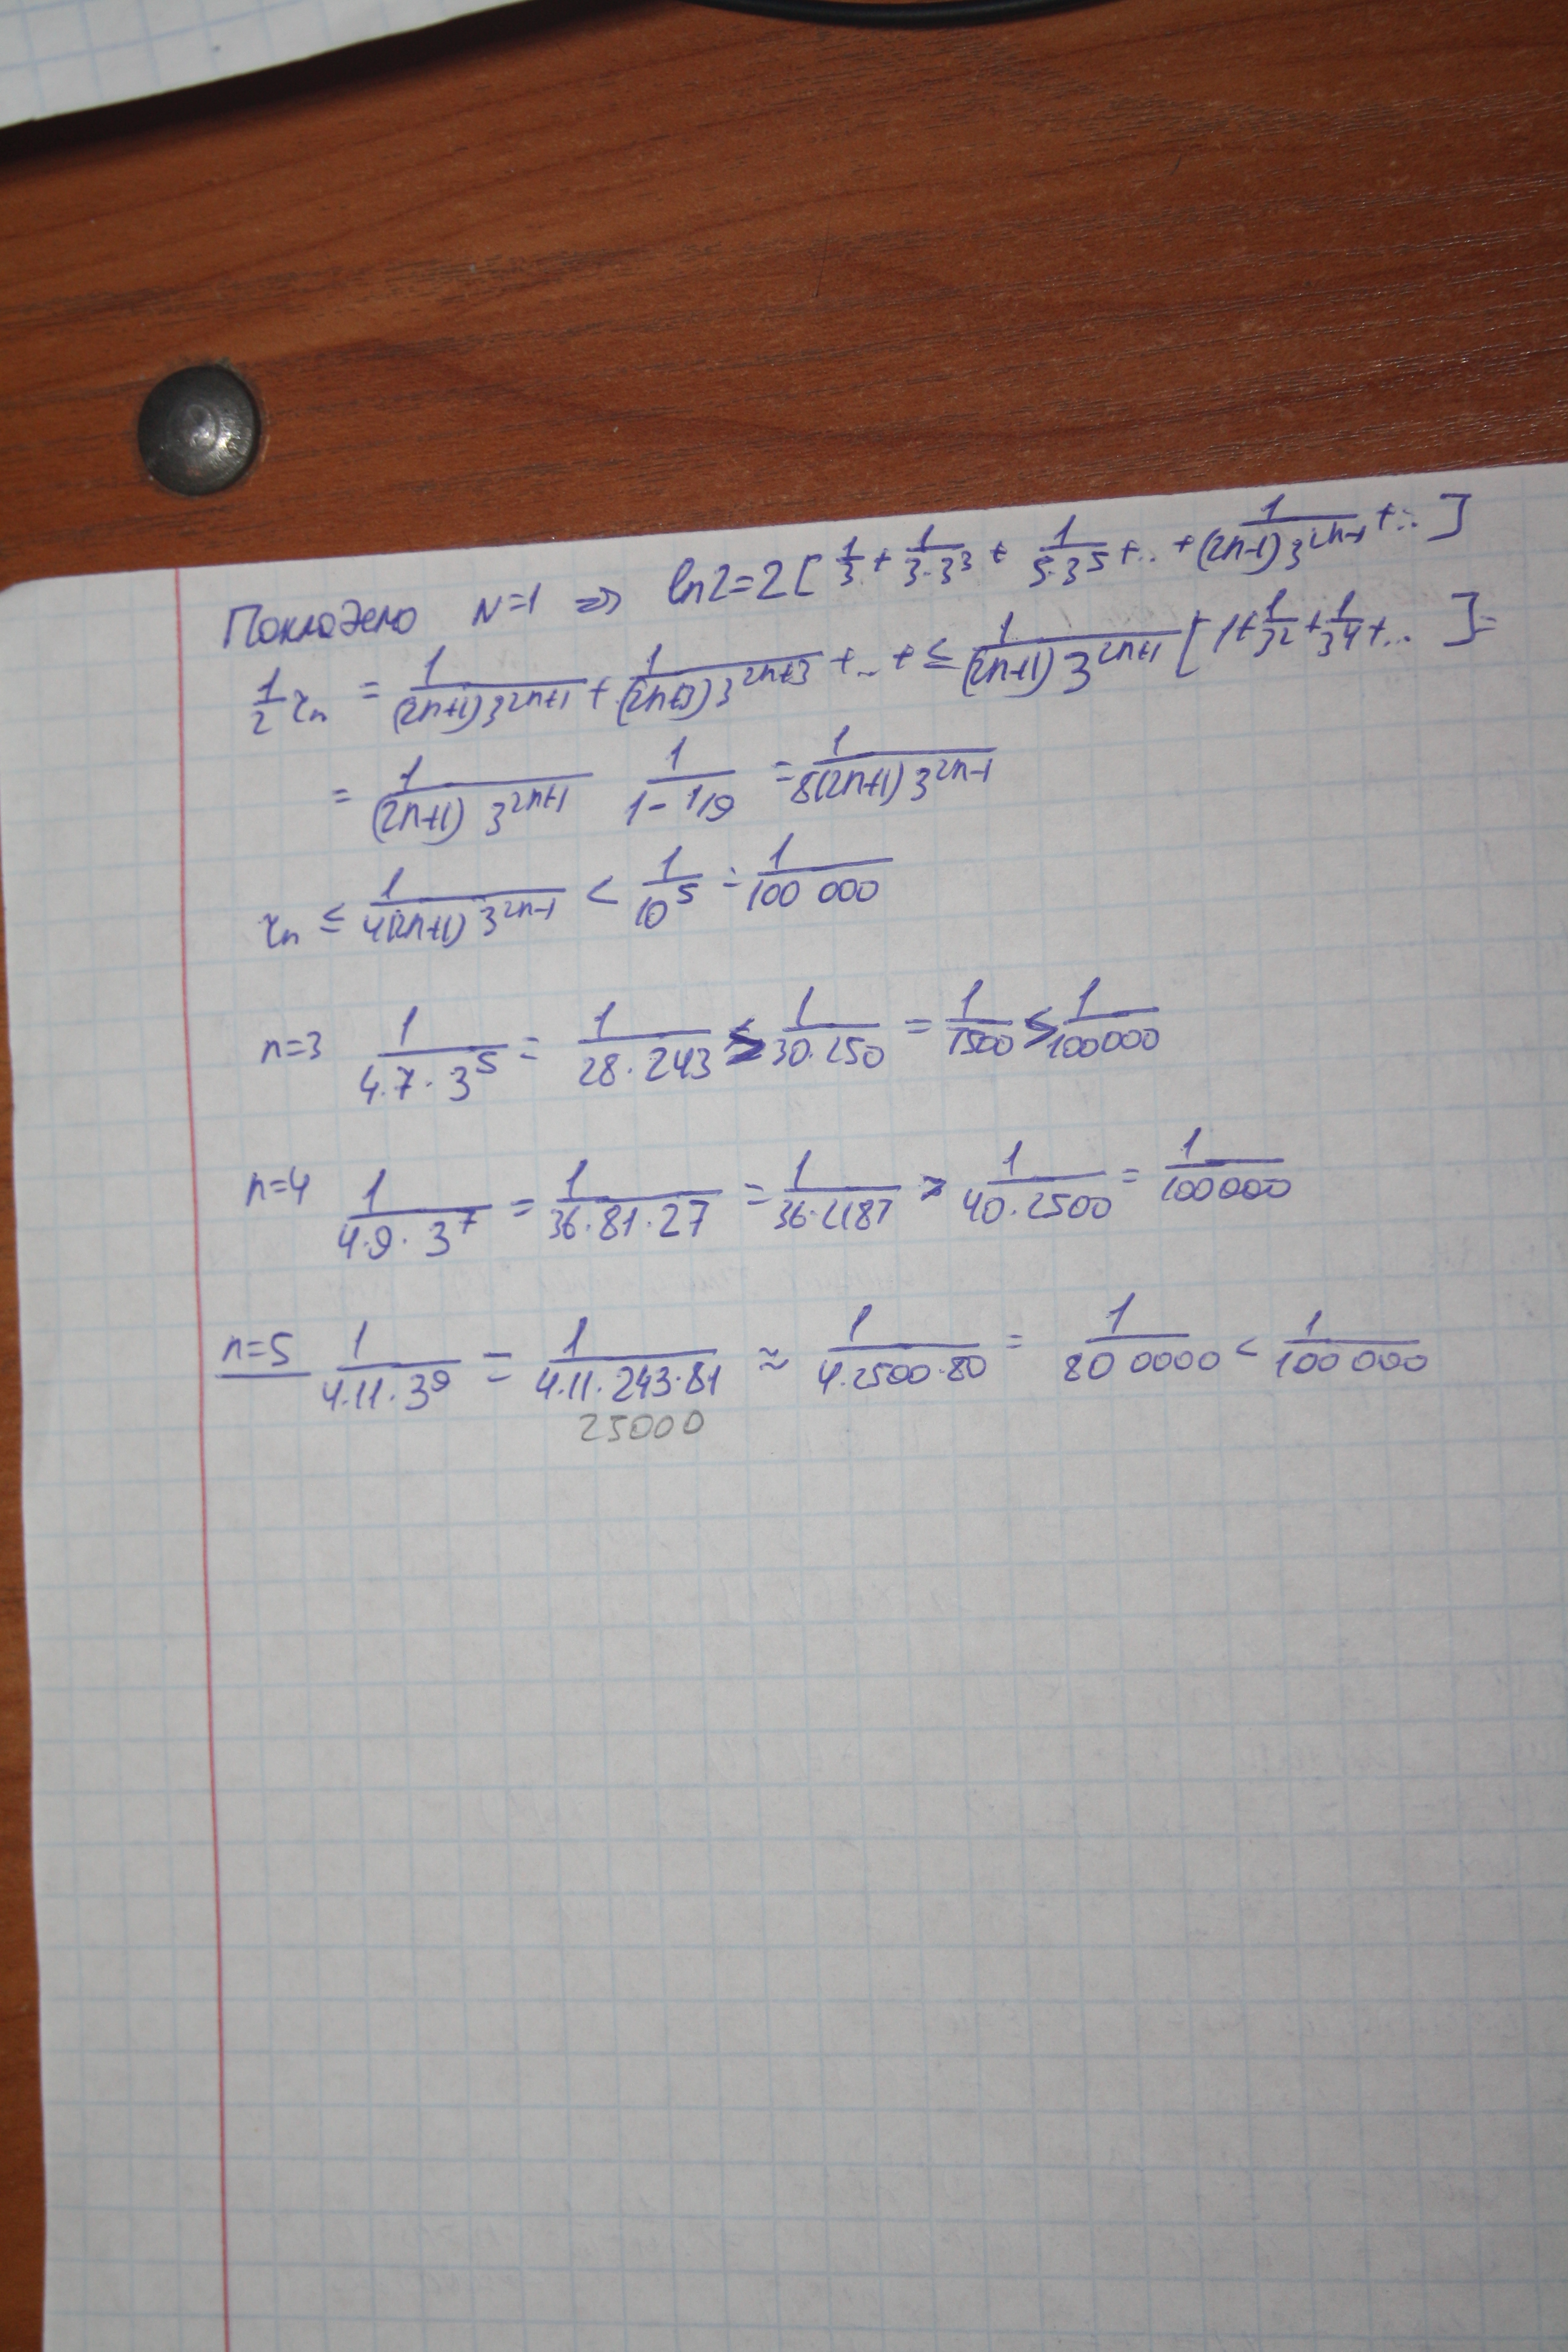 Покладемо N=1 => ln2=2[1/3 + 1/(3·3^3) + 1/(5·3^5) + .. + 1/((2n-1)3^(2n-1)) + ... ]
1/2 r_n = 1/((2n+1)3^(2n+1)) + 1/((2n+3)3^(2n+3)) + .. + ≤ 1/((2n+1)3^(2n+1)) [1 + 1/3^2 + 1/3^4 + ... ] =
= 1/((2n+1) 3^(2n+1)) 1/(1-1/9) = 1/(8(2n+1)3^(2n-1))
r_n ≤ 1/(4(2n+1)3^(2n-1)) < 1/10^5 = 1/100 000
n=3 1/(4·7·3^5) = 1/(28·243) ≥ 1/(30·250) = 1/7500 > 1/100000
n=4 1/(4·9·3^7) = 1/(36·81·27) = 1/(36·2187) > 1/(40·2500) = 1/100000
n=5 1/(4·11·3^9) = 1/(4·11·243·81) ≈ 1/(4·2500·80) = 1/80 0000 < 1/100 000
25000